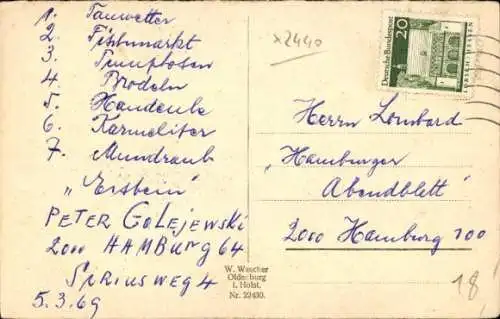 1. Tauwetter
2. Fischmarkt
3.
4 Brodeln
5.
6. Karmeliter
7. Mundraub
"Erstein"
PETER GOLEJEWSKI
2000 HAMBURG 64
SIRIUSWEG 4
5.3.69
x2440
Deutsche Bundespost
20
LORSCH/HESSEN
Herrn Lombard
"Hamburger
Abendblatt"
2000 Hamburg 100
W. Wescher
Oldenburg
i. Holst.
Nr. 22430.
18